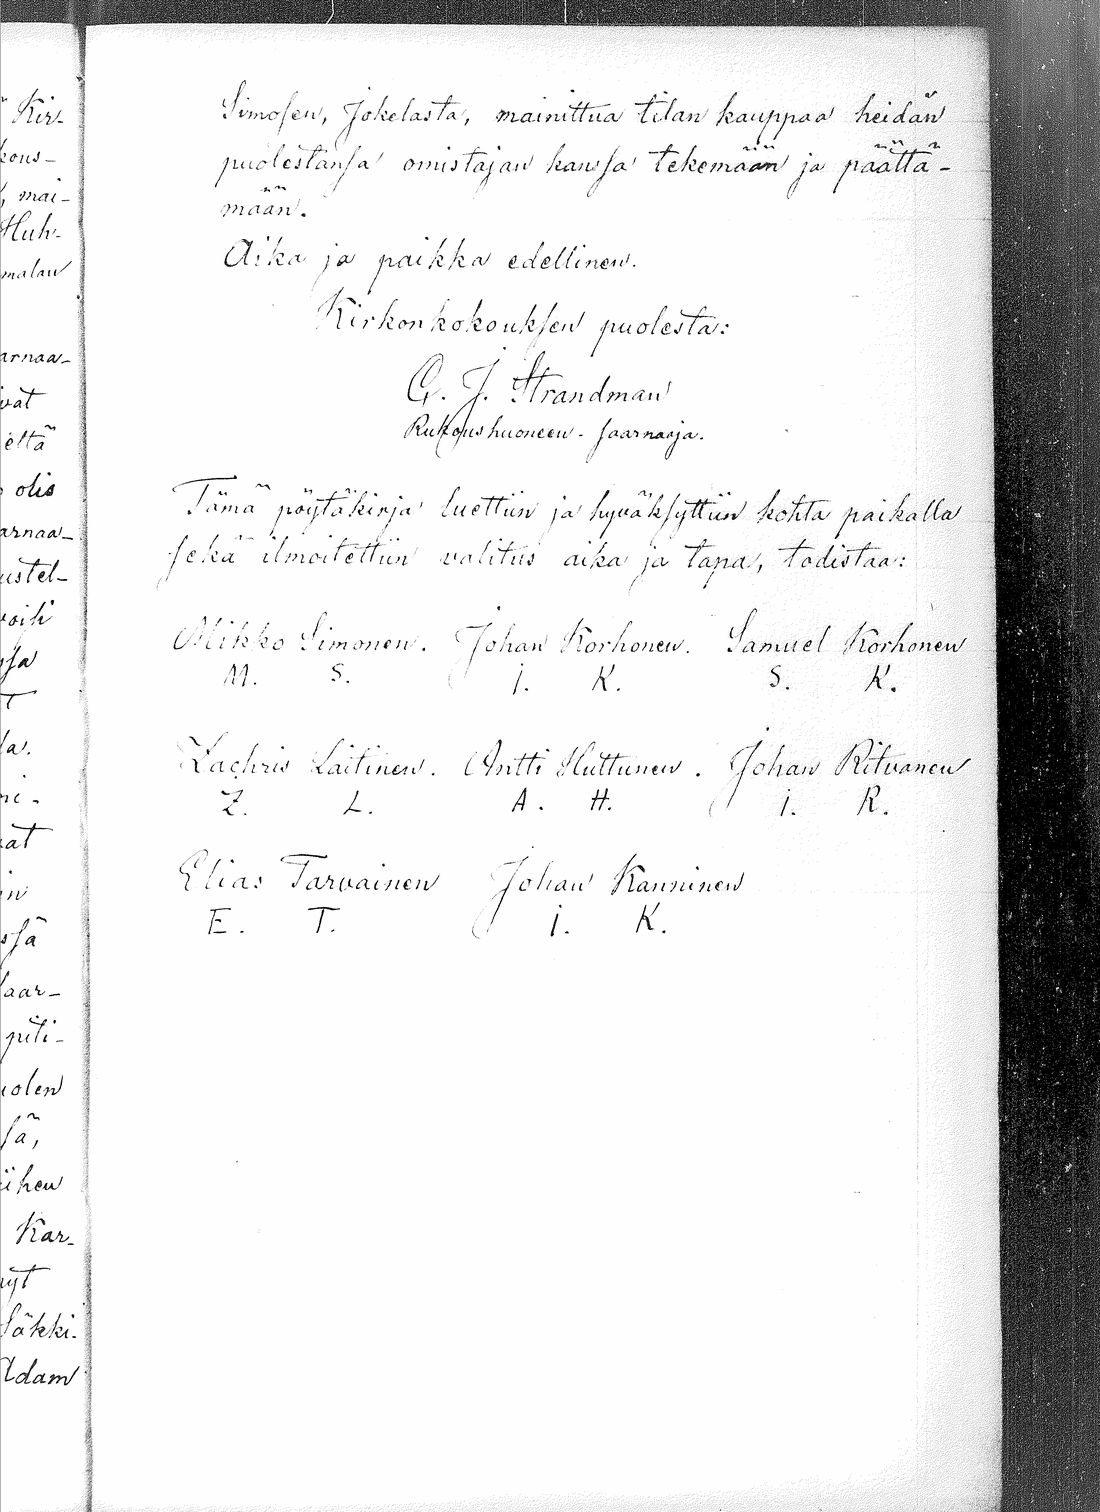 Kir-
kous-
, mai-
Huh-
malan
arnaa-
vat
eltä
olis
arnaa-
ustel-
voili
ssa
la.
ni-
at
in
ssä
saar-
piti-
uolen
sä,
ihen
Kar-
nyt
Säkki-
Adam
Simosen, Jokelasta, mainittua tilan kauppaa heidän
puolestansa omistajan kanssa tekemään ja päättä-
mään.
Aika ja paikka edellinen.
Kirkonkokouksen puolesta:
G. J. Strandman
Rukoushuoneen-saarnaaja.
Tämä pöytäkirja luettiin ja hyväksyttiin kohta paikalla
sekä ilmoitettiin valitus aika ja tapa, todistaa:
Mikko Simonen. Johan Korhonen. Samuel Korhonen
M. S. I. K. S. K.
Zachris Laitinen. Antti Huttunen. Johan Ritvanen
Z. L. A. H. I. R.
Elias Tarvainen Johan Kanninen
E. T. I. K.